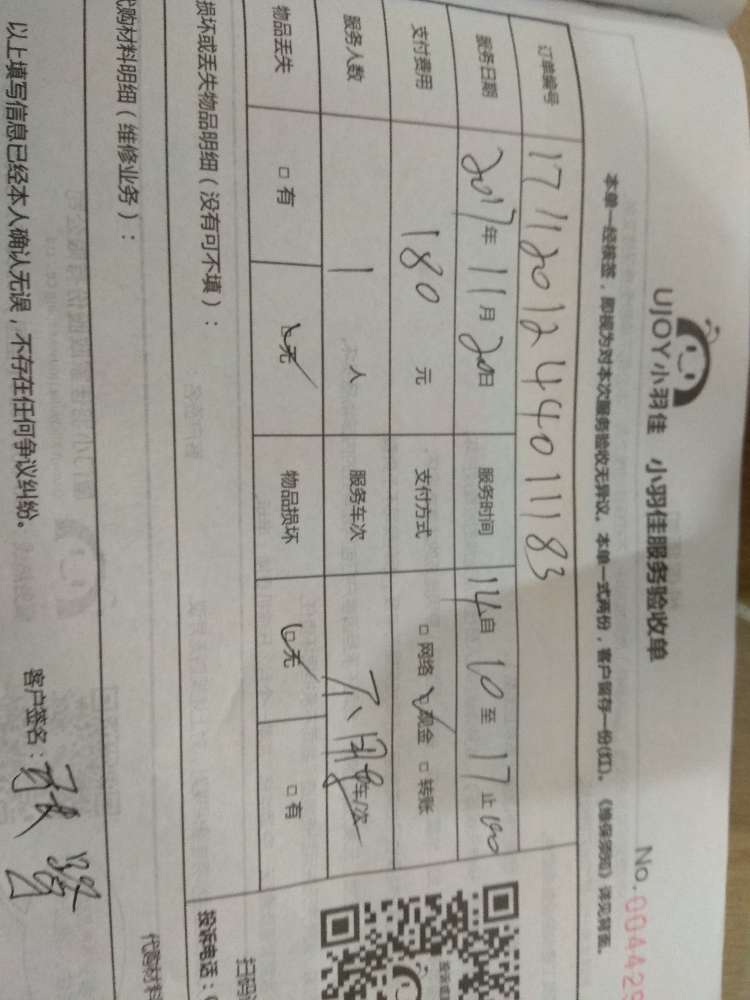 UJOY小羽佳 小羽佳服务验收单
No.004429
本单一经核签，即视为对本次服务验收无异议。本单一式两份，客户留存一份(红)。《维保须知》详见背面。
订单编号 171120124401183
服务日期 2017年11月20日 服务时间 14自10至17止00
支付费用 180元 支付方式 □网络 ☑现金 □转账
服务人数 1人 服务车次 不用车/次
物品丢失 □有 ☑无 物品损坏 ☑无 □有
损坏或丢失物品明细（没有可不填）：
投诉电话：
代购材料明细（维修业务）：
代购材料
以上填写信息已经本人确认无误，不存在任何争议纠纷。
客户签名：